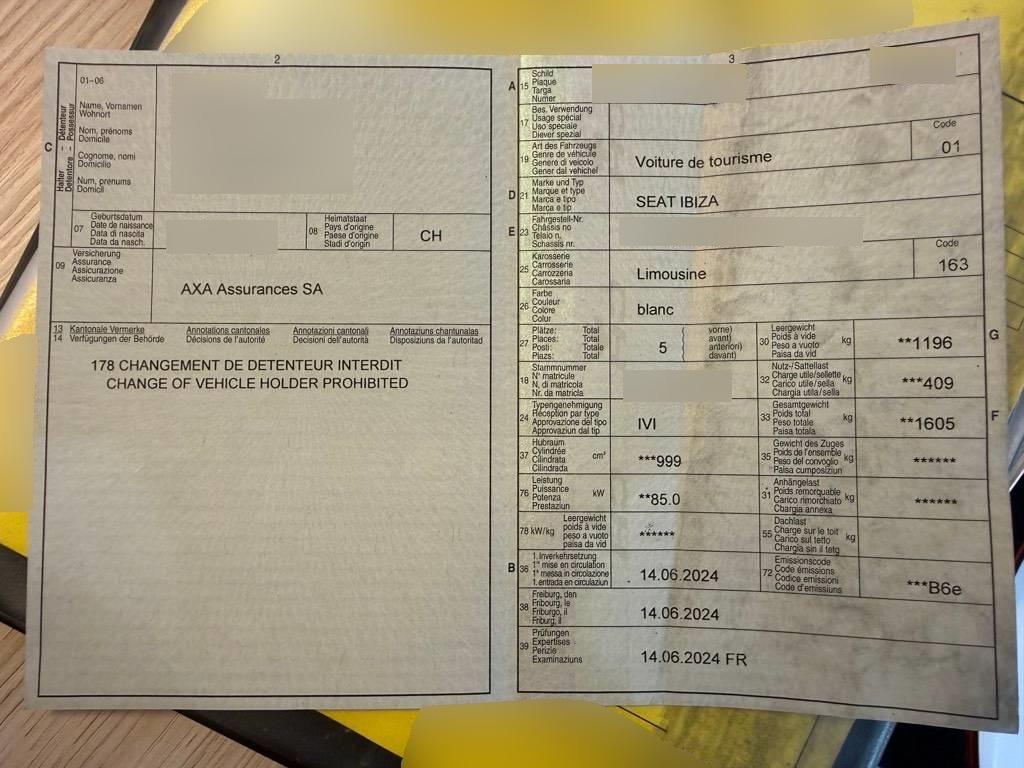 2
01-06
Name, Vornamen
Wohnort
Nom, prénoms
Domicile
Cognome, nomi
Domicilio
Num, prenums
Domicil
C
Halter – Détenteur
Detentore – Possessur
07
Geburtsdatum
Date de naissance
Data di nascita
Data da nasch.
08
Heimatstaat
Pays d'origine
Paese d'origine
Stadi d'origin
CH
09
Versicherung
Assurance
Assicurazione
Assicuranza
AXA Assurances SA
13 Kantonale Vermerke Annotations cantonales Annotazioni cantonali Annotaziuns chantunalas
14 Verfügungen der Behörde Décisions de l'autorité Decisioni dell'autorità Disposiziuns da l'autoritad
178 CHANGEMENT DE DETENTEUR INTERDIT
CHANGE OF VEHICLE HOLDER PROHIBITED
3
A 15
Schild
Plaque
Targa
Numer
17
Bes. Verwendung
Usage spécial
Uso speciale
Diever spezial
19
Art des Fahrzeugs
Genre de véhicule
Genere di veicolo
Gener dal vehichel
Voiture de tourisme
Code
01
D 21
Marke und Typ
Marque et type
Marca e tipo
Marca e tip
SEAT IBIZA
E 23
Fahrgestell-Nr.
Châssis no
Telaio n.
Schassis nr.
25
Karosserie
Carrosserie
Carrozzeria
Carossaria
Limousine
Code
163
26
Farbe
Couleur
Colore
Colur
blanc
27
Plätze: Total
Places: Total
Posti: Totale
Plazs: Total
5
vorne)
avant)
anteriori)
davant)
30
Leergewicht
Poids à vide
Peso a vuoto
Paisa da vid
kg
**1196
G
18
Stammnummer
N° matricule
N. di matricola
Nr. da matricla
32
Nutz-/Sattellast
Charge utile/sellette
Carico utile/sella
Chargia utila/sella
kg
***409
24
Typengenehmigung
Réception par type
Approvazione del tipo
Approvaziun dal tip
IVI
33
Gesamtgewicht
Poids total
Peso totale
Paisa totala
kg
**1605
F
37
Hubraum
Cylindrée
Cilindrata
Cilindrada
cm³
***999
35
Gewicht des Zuges
Poids de l'ensemble
Peso del convoglio
Paisa cumposiziun
kg
******
76
Leistung
Puissance
Potenza
Prestaziun
kW
**85.0
31
Anhängelast
Poids remorquable
Carico rimorchiato
Chargia annexa
kg
******
78 kW/kg
Leergewicht
poids à vide
peso a vuoto
paisa da vid
******
55
Dachlast
Charge sur le toit
Carico sul tetto
Chargia sin il tetg
kg
B 36
1. Inverkehrsetzung
1re mise en circulation
1a messa in circolazione
1. entrada en circulaziun
14.06.2024
72
Emissionscode
Code émissions
Codice emissioni
Code d'emissiuns
***B6e
38
Freiburg, den
Fribourg, le
Friburgo, il
Friburg, il
14.06.2024
39
Prüfungen
Expertises
Perizie
Examinaziuns
14.06.2024 FR